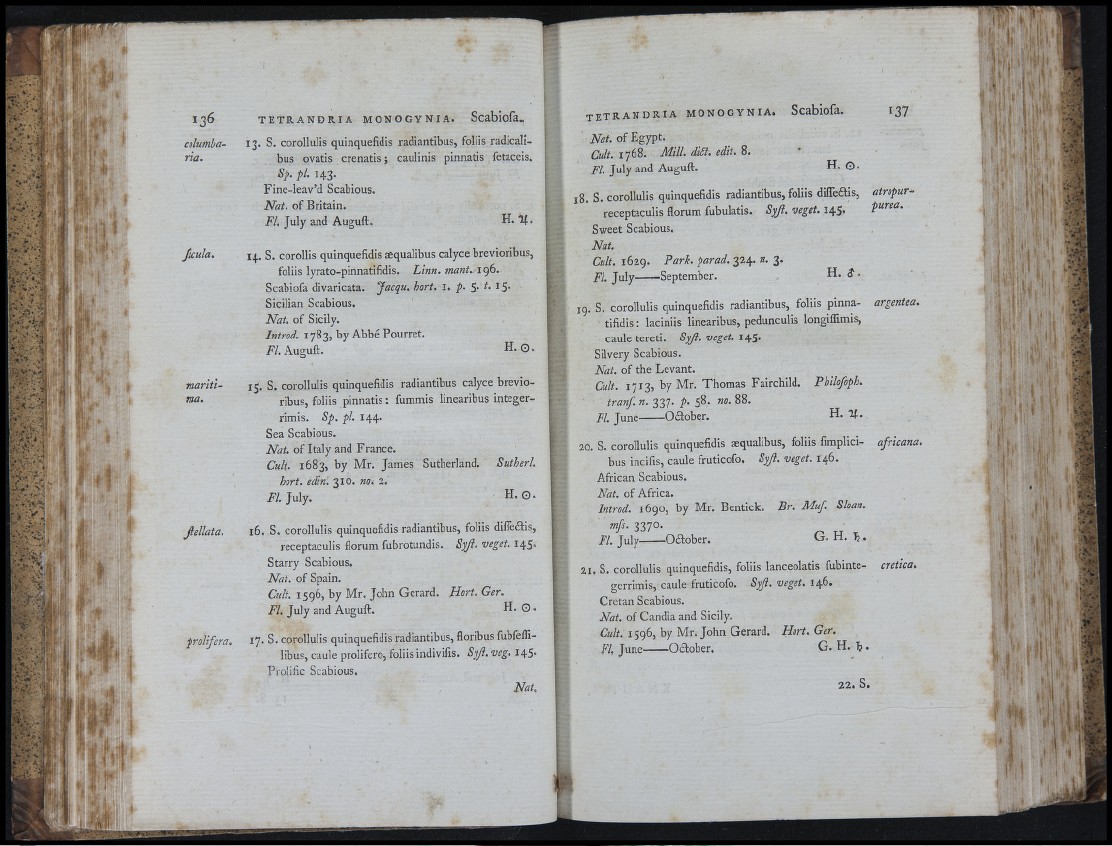 136 TETRANDRIA MONOGYNIA. Scabiosa.
columba- 13. S. corollulis quinquefidis radiantibus, foliis radicali-
ria. bus ovatis crenatis; caulinis pinnatis setaceis.
Sp. pl. 143.
Fine-leav'd Scabious.
Nat. of Britain.
Fl. July and August. H. ♃.
sicula. 14. S. corollis quinquefidis æqualibus calyce brevioribus,
foliis lyrato-pinnatifidis. Linn. mant. 196.
Scabiosa divaricata. Jacqu. hort. 1. p. 5. t. 15.
Sicilian Scabious.
Nat. of Sicily.
Introd. 1783, by Abbé Pourret.
Fl. August. H. ☉.
mariti- 15. S. corollulis quinquefidis radiantibus calyce brevio-
ma. ribus, foliis pinnatis: summis linearibus integer-
rimis. Sp. pl. 144.
Sea Scabious.
Nat. of Italy and France.
Cult. 1683, by Mr. James Sutherland. Sutherl.
hort. edin. 310. no. 2.
Fl. July. H. ☉.
stellata. 16. S. corollulis quinquefidis radiantibus, foliis dissectis,
receptaculis florum subrotundis. Syst. veget. 145.
Starry Scabious.
Nat. of Spain.
Cult. 1596, by Mr. John Gerard. Hort. Ger.
Fl. July and August. H. ☉.
prolifera. 17. S. corollulis quinquefidis radiantibus, floribus subsessi-
libus, caule prolifero, foliis indivisis. Syst. veg. 145.
Prolific Scabious.
Nat.
TETRANDRIA MONOGYNIA. Scabiosa. 137
Nat. of Egypt.
Cult. 1768. Mill. dict. edit. 8.
Fl. July and August. H. ☉.
18. S. corollulis quinquefidis radiantibus, foliis dissectis, atropur-
receptaculis florum subulatis. Syst. veget. 145. purea.
Sweet Scabious.
Nat.
Cult. 1629. Park. parad. 324. n. 3.
Fl. July——September. H. ♂.
19. S. corollulis quinquefidis radiantibus, foliis pinna- argentea.
tifidis: laciniis linearibus, pedunculis longissimis,
caule tereti. Syst. veget. 145.
Silvery Scabious.
Nat. of the Levant.
Cult. 1713, by Mr. Thomas Fairchild. Philosoph.
trans. n. 337. p. 58. no. 88.
Fl. June——October. H. ♃.
20. S. corollulis quinquefidis æqualibus, foliis simplici- africana.
bus incisis, caule fruticoso. Syst. veget. 146.
African Scabious.
Nat. of Africa.
Introd. 1690, by Mr. Bentick. Br. Mus. Sloan.
mss. 3370.
Fl. July——October. G. H. ♄.
21. S. corollulis quinquefidis, foliis lanceolatis subinte- cretica.
gerrimis, caule fruticoso. Syst. veget. 146.
Cretan Scabious.
Nat. of Candia and Sicily.
Cult. 1596, by Mr. John Gerard. Hort. Ger.
Fl. June——October. G. H. ♄.
22. S.